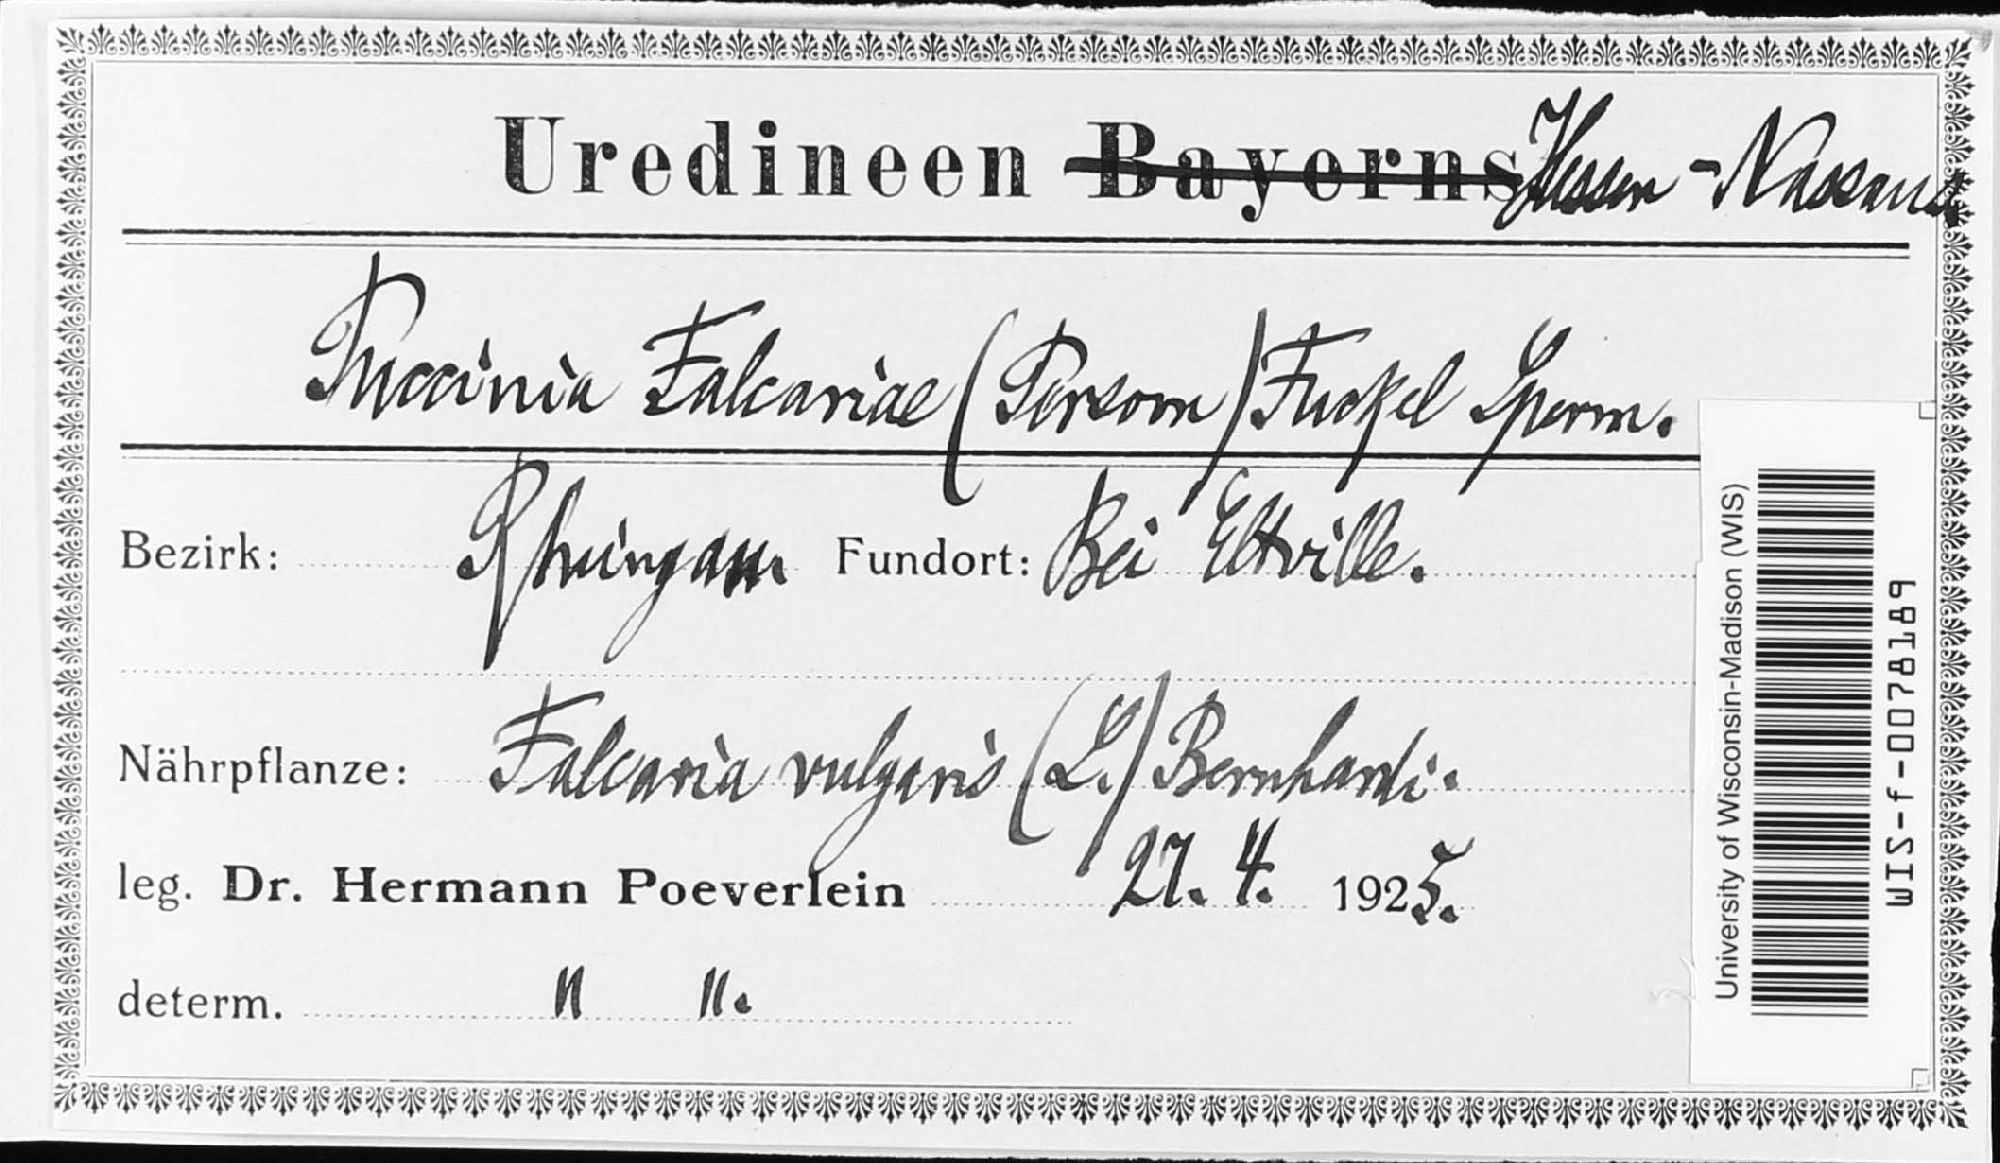 Uredineen Bayerns Hessen-Nassau
Puccinia Falcariae (Persoon) Fuckel Sperm.
Bezirk: Rheingau Fundort: Bei Eltville.
Nährpflanze: Falcaria vulgaris (L.) Bernhardi.
leg. Dr. Hermann Poeverlein 27. 4. 1925.
determ. " ".
University of Wisconsin-Madison (WIS)
WIS-f-0078189